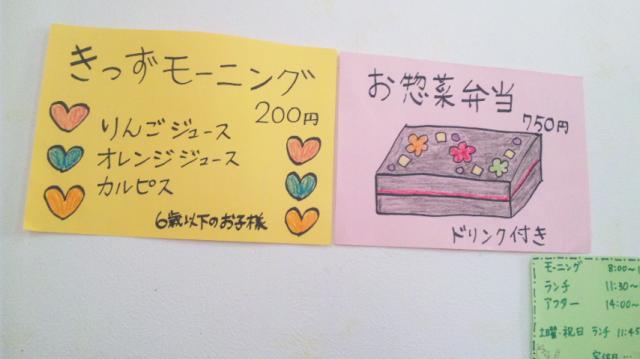 きっずモーニング
200円
りんごジュース
オレンジジュース
カルピス
6歳以下のお子様
お惣菜弁当
750円
ドリンク付き
モーニング 8:00~
ランチ 11:30~
アフター 14:00~
土曜・祝日 ランチ 11:45
定休日